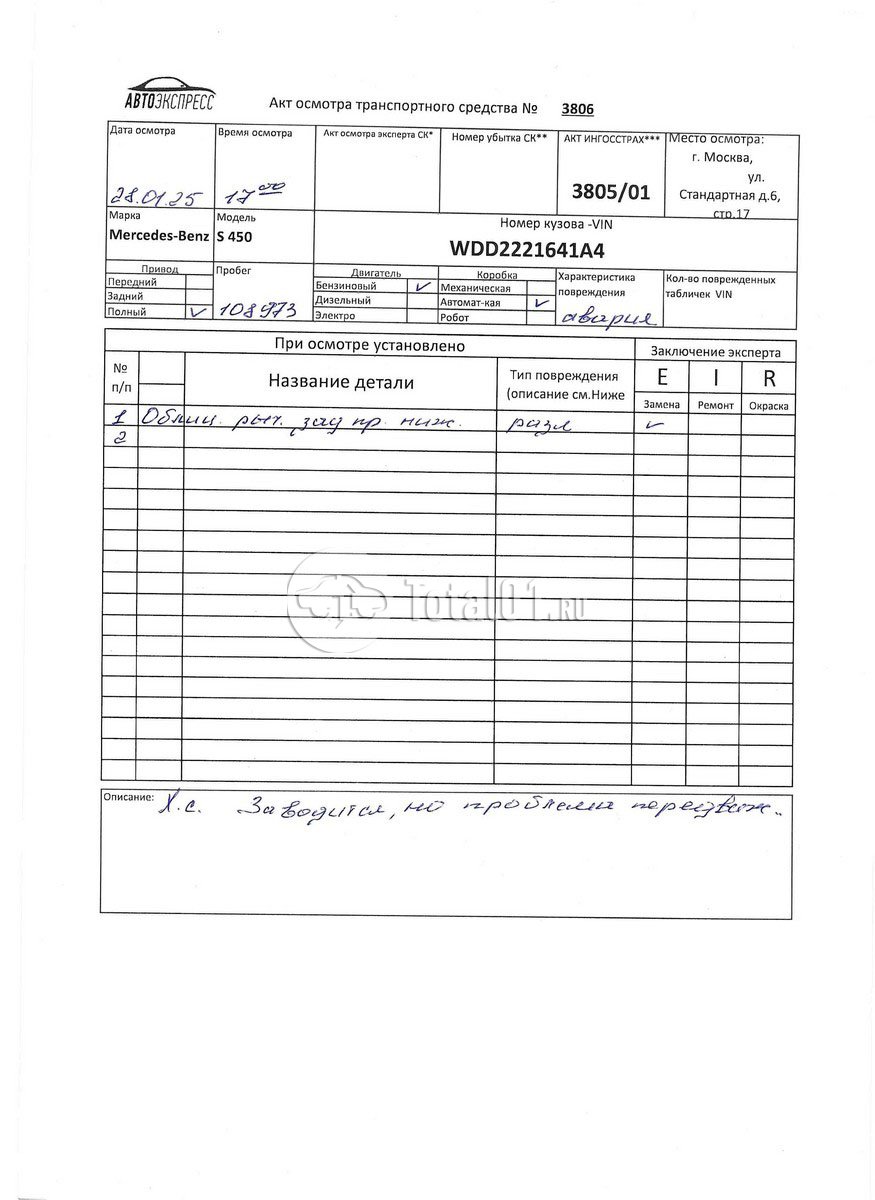 АВТОЭКСПРЕСС
Акт осмотра транспортного средства № 3806
Дата осмотра Время осмотра Акт осмотра эксперта СК* Номер убытка СК** АКТ ИНГОССТРАХ*** Место осмотра:
28.01.25 17 00 3805/01 г. Москва,
ул.
Стандартная д.6,
стр.17
Марка Модель Номер кузова -VIN
Mercedes-Benz S 450 WDD2221641A4
Привод Пробег Двигатель Коробка Характеристика повреждения Кол-во поврежденных табличек VIN
Передний Бензиновый Механическая
Задний Дизельный Автомат-кая
Полный 108973 Электро Робот авария
При осмотре установлено Заключение эксперта
№ п/п Название детали Тип повреждения (описание см.Ниже E I R
Замена Ремонт Окраска
1 Облиц. рыч. зад пр. ниж. разл
2
Total01.RU
Описание: Х.с. Заводится, но проблема